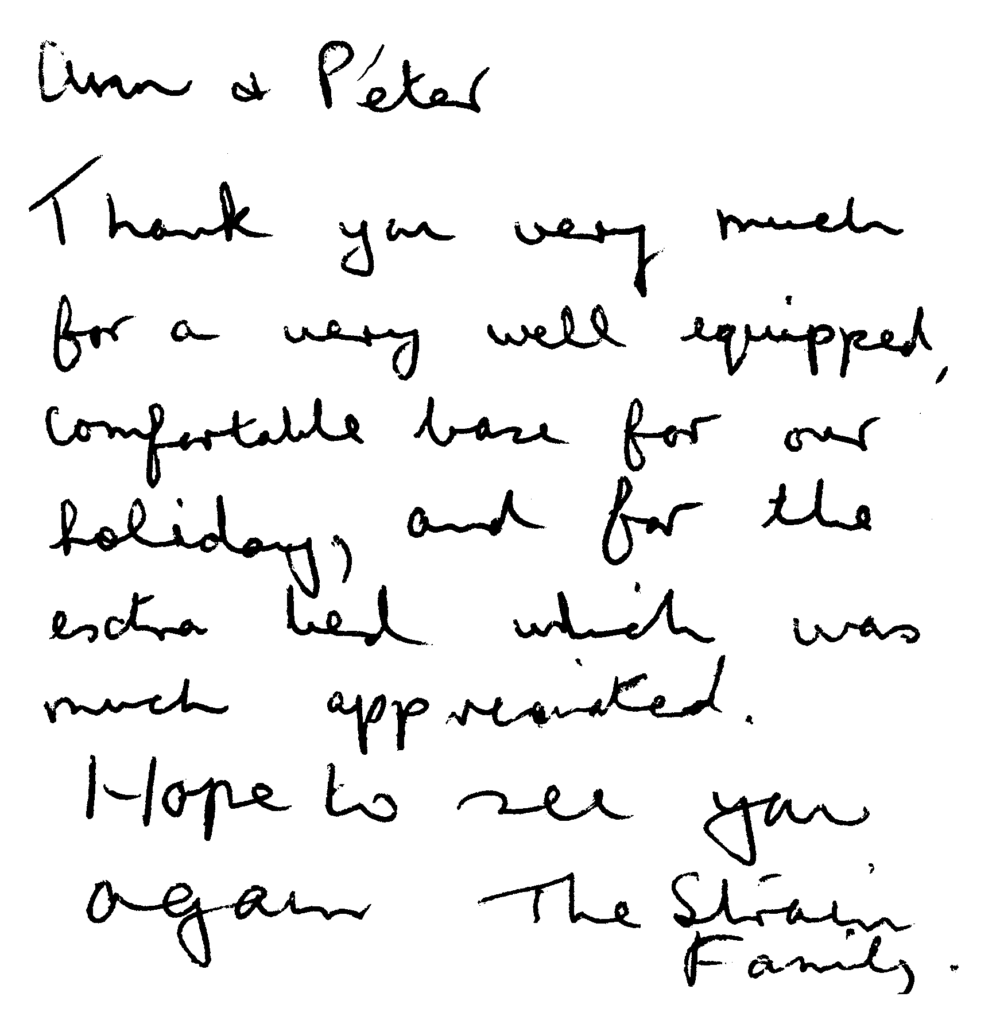 Ann & Peter
Thank you very much
for a very well equipped,
comfortable base for our
holiday, and for the
extra bed which was
much appreciated.
Hope to see you
again The Strain
Family.